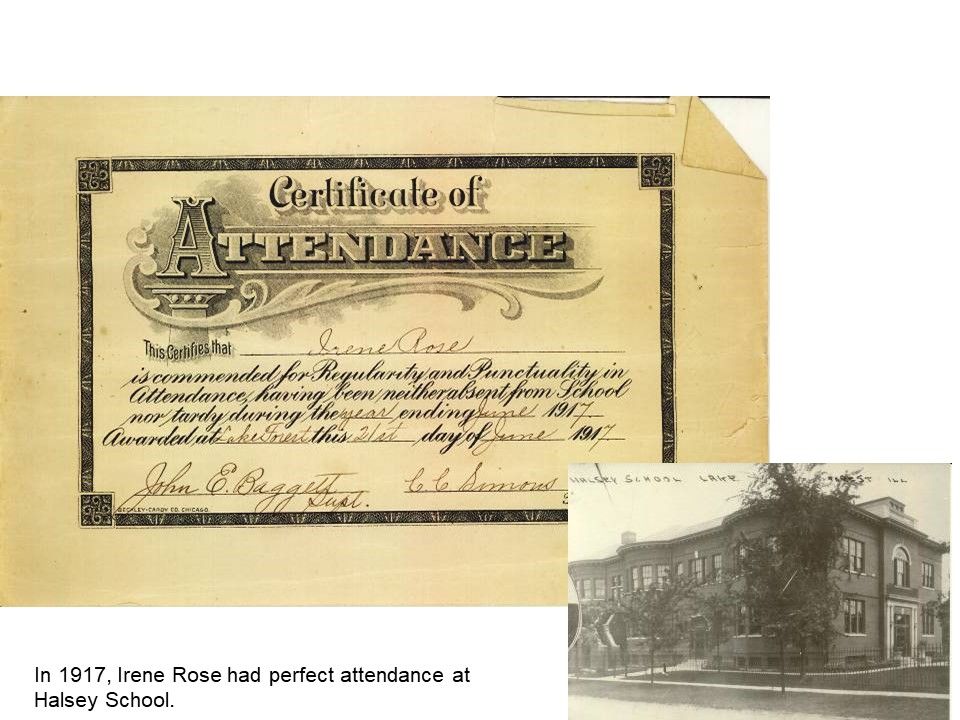 Certificate of
ATTENDANCE
This Certifies that Irene Rose
is commended for Regularity and Punctuality in
Attendance, having been neither absent from School
nor tardy during the year ending June 1917.
Awarded at Lake Forest this 21st day of June 1917.
John E. Baggett C. C. Simons
Supt.
BECKLEY-CARDY CO. CHICAGO.
HALSEY SCHOOL LAKE FOREST ILL
In 1917, Irene Rose had perfect attendance at
Halsey School.